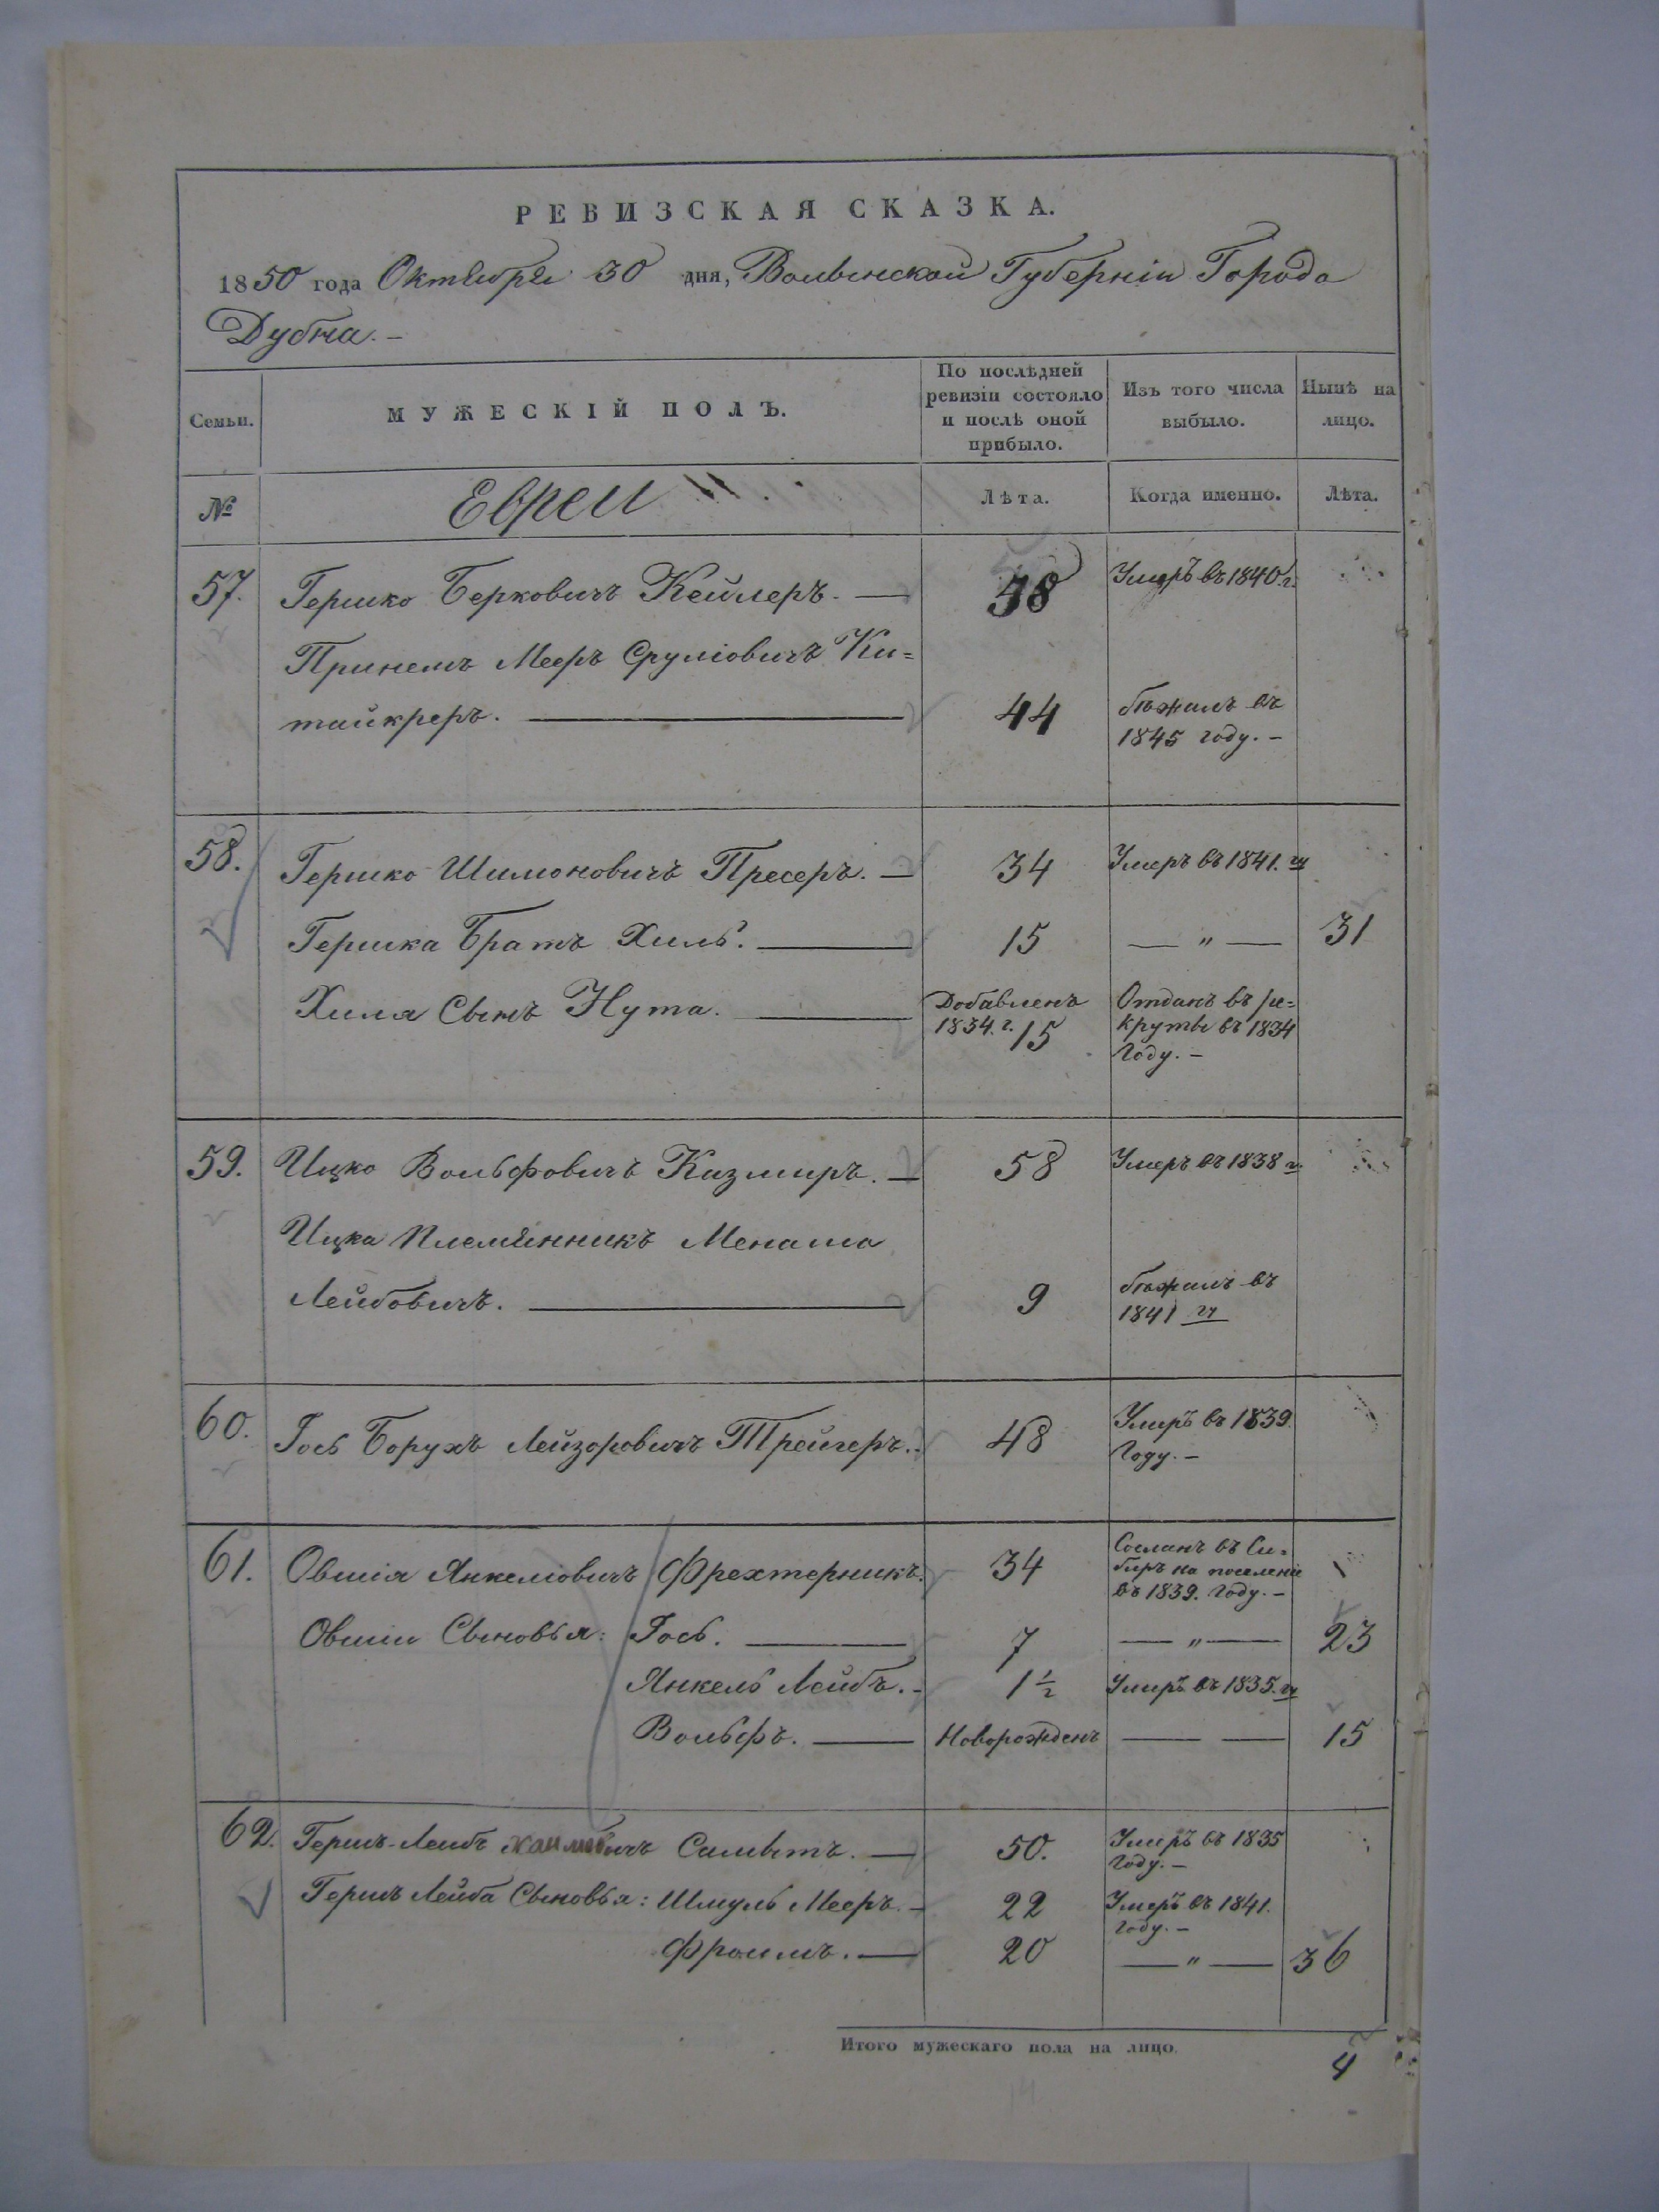 РЕВИЗСКАЯ СКАЗКА.
1850 года Октября 30 дня, Волынской Губерніи Города
Дубна. —
Семьи. МУЖЕСКІЙ ПОЛЪ. По послѣдней ревизіи состояло и послѣ оной прибыло. Изъ того числа выбыло. Нынѣ на лицо.
№ Евреи Лѣта. Когда именно. Лѣта.
57. Гершко Берковичъ Кейлеръ. — 38 Умеръ въ 1840. г.
Принемъ Мееръ Сруліовичъ Ки=
тайкреръ. — 44 бѣжалъ въ
1845 году. —
58. Гершко Шимоновичъ Пресеръ. — 34 Умеръ въ 1841. г.
Гершка Братъ Хиль. — 15 — " — 31
Хиля Сынъ Нута. — Добавленъ
1834. г. 15 Отданъ въ ре=
круты въ 1834
Году. —
59. Ицко Вольфовичъ Казмиръ. — 58 Умеръ въ 1838 г.
Ицка Племянникъ Менаша
Лейбовичъ. — 9 бѣжалъ въ
1841 г.
60. Гось Борухъ Лейзоровичъ Трейгеръ. 48 Умеръ въ 1839.
Году. —
61. Овшія Янкеліовичъ Фрехтерникъ. 34 Сосланъ въ Си=
биръ на поселеніе
въ 1839. Году. —
Овшіи Сыновья: Гось. — 7 — " — 23
Янкель Лейбъ. — 1 1/2 Умеръ въ 1835. г.
Вольфъ. — Новорожденъ — — 15
62. Гершъ-Лейбъ Хаимовичъ Самытъ. — 50. Умеръ въ 1835
Году. —
Гершъ Лейба Сыновья: Шмуль Мееръ. — 22 Умеръ въ 1841.
году. —
Фроимъ. — 20 — " — 36
Итого мужескаго пола на лицо. 4